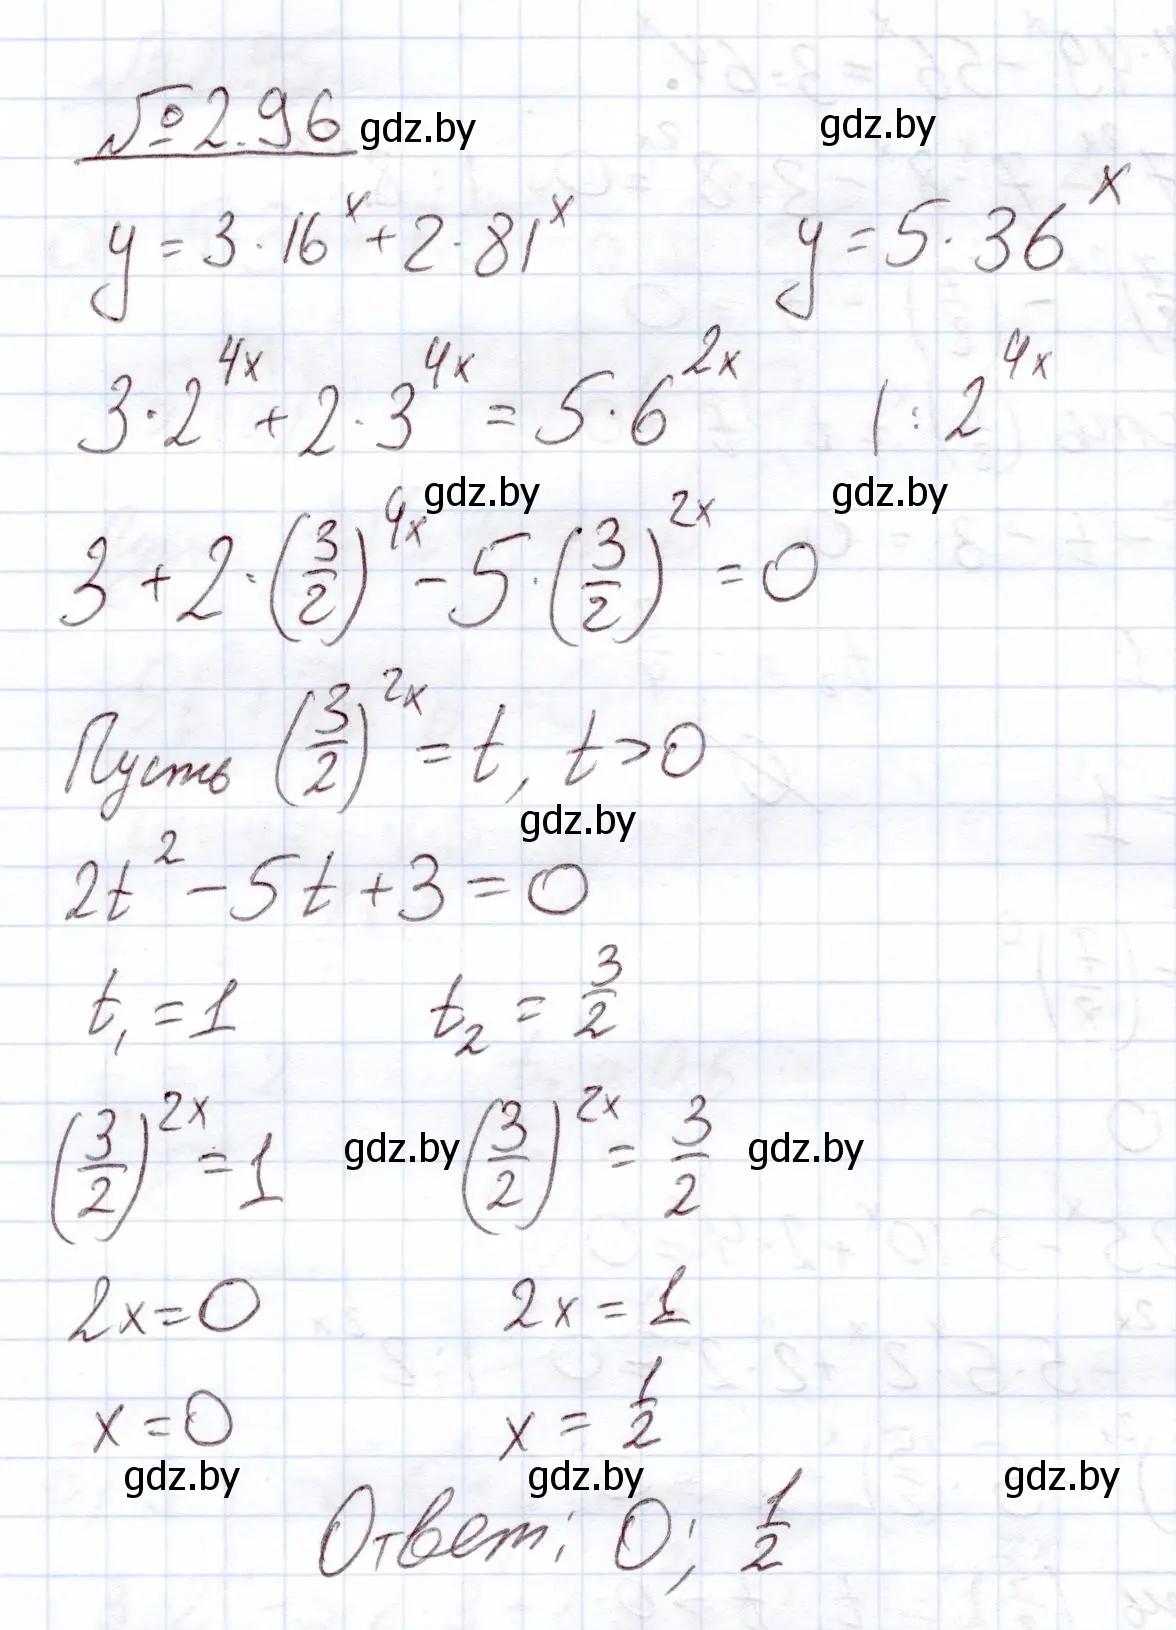 № 2.96 gdz.by gdz.by
y = 3·16^x + 2·81^x y = 5·36^x
3·2^{4x} + 2·3^{4x} = 5·6^{2x} |:2^{4x}
gdz.by gdz.by
3 + 2·(3/2)^{4x} - 5·(3/2)^{2x} = 0
Пусть (3/2)^{2x} = t, t > 0
gdz.by
2t^2 - 5t + 3 = 0
t_1 = 1 t_2 = 3/2
(3/2)^{2x} = 1 gdz.by (3/2)^{2x} = 3/2 gdz.by
2x = 0 2x = 1
x = 0 x = 1/2
gdz.by gdz.by gdz.by
Ответ: 0; 1/2